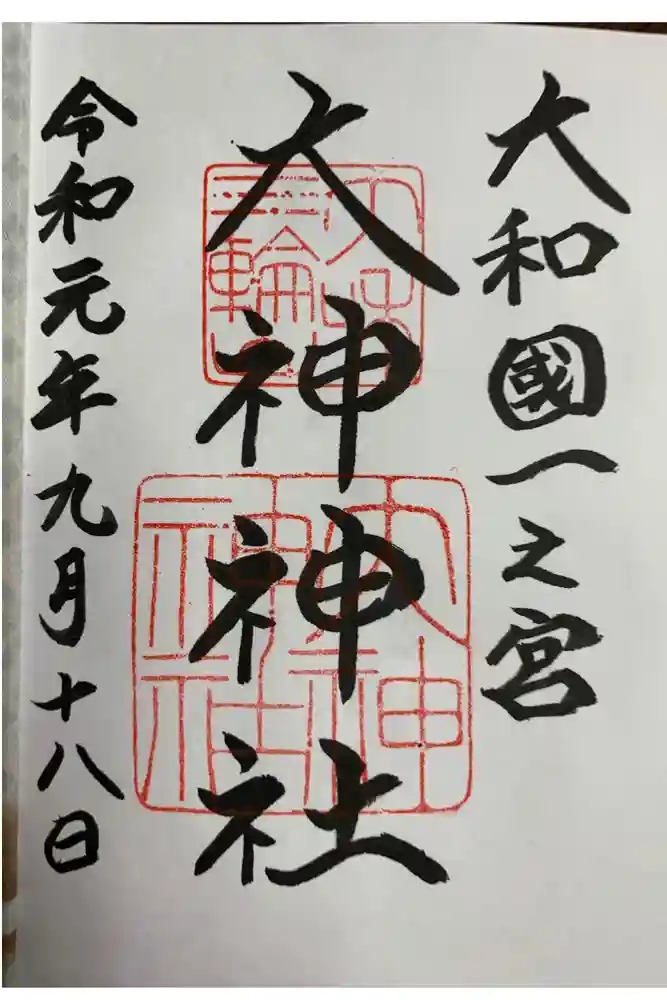 大和國一之宮
大神神社
令和元年九月十八日
大神神社